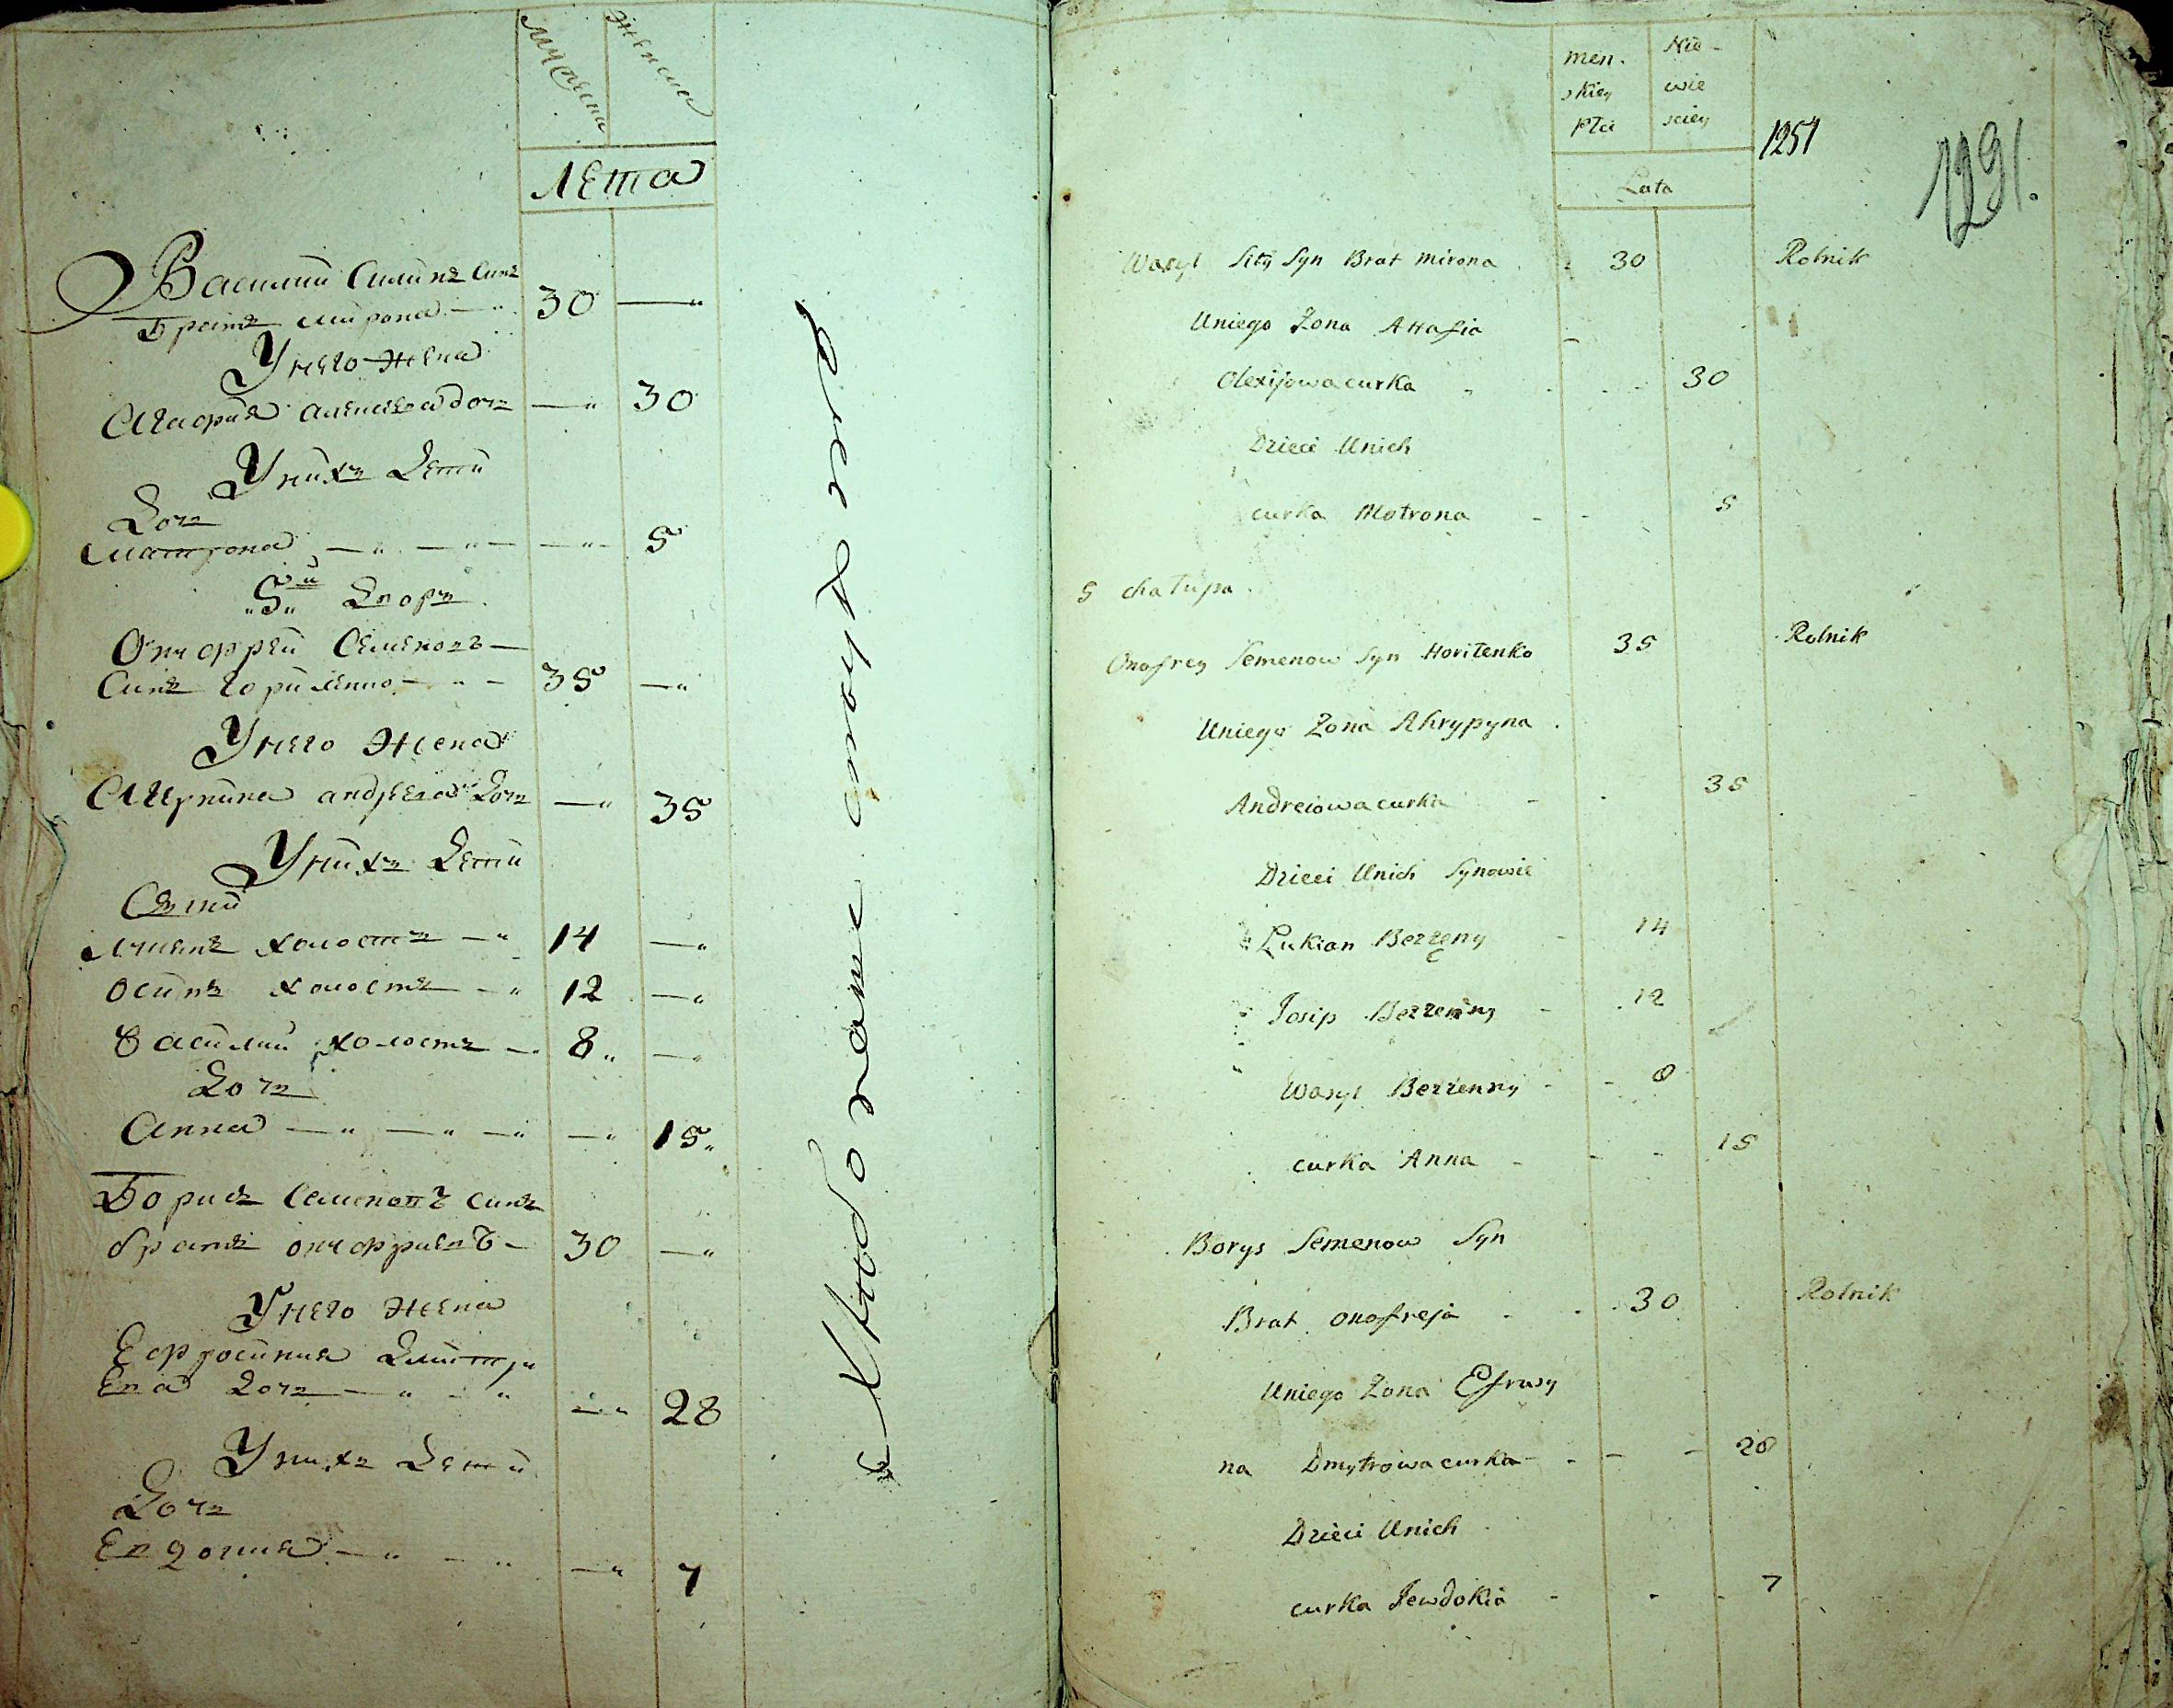 мужеска
женска
лета
Василий Силинъ Синъ
Братъ мирона 30
Унего жена
Агафия алексеева дочь 30
Унихъ Дети
Дочь
матрона 5
5й Дворъ
Онофрей Семеновъ
Синъ гориленко 35
Унего жена
Агрипина андреева Дочь 35
Унихъ Дети
Сыни
лукянъ холостъ 14
осипъ холостъ 12
василий холостъ 8
Дочь
Анна 15
Борисъ Семеновъ синъ
братъ онофриевъ 30
Унего жена
Ефросиния Дмитри
Ева дочь 28
Унихъ Дети
Дочь
Евдокия 7
men. Nie-
skiey wie
Płci sciey
Lata
1251
1291.
Wasyl Siły Syn Brat mirona 30 Rolnik
Uniego Zona Ahafia
Olexijowa curka 30
Dzieci Unich
curka Motrona 5
5 chałupa
Onofrey Semenow Syn Horiłenko 35 Rolnik
Uniego Zona Ahrypyna
Andreiowa curka 35
Dzieci Unich Synowie
Łukian Bezżeny 14
Josip Bezżenny 12
Wasyl Bezżenny 8
curka Anna 15
Borys Semenow Syn
Brat onofreja 30 Rolnik
Uniego Zona Efrosy
na Dmytrowa curka 28
Dzieci Unich
curka Jewdokia 7